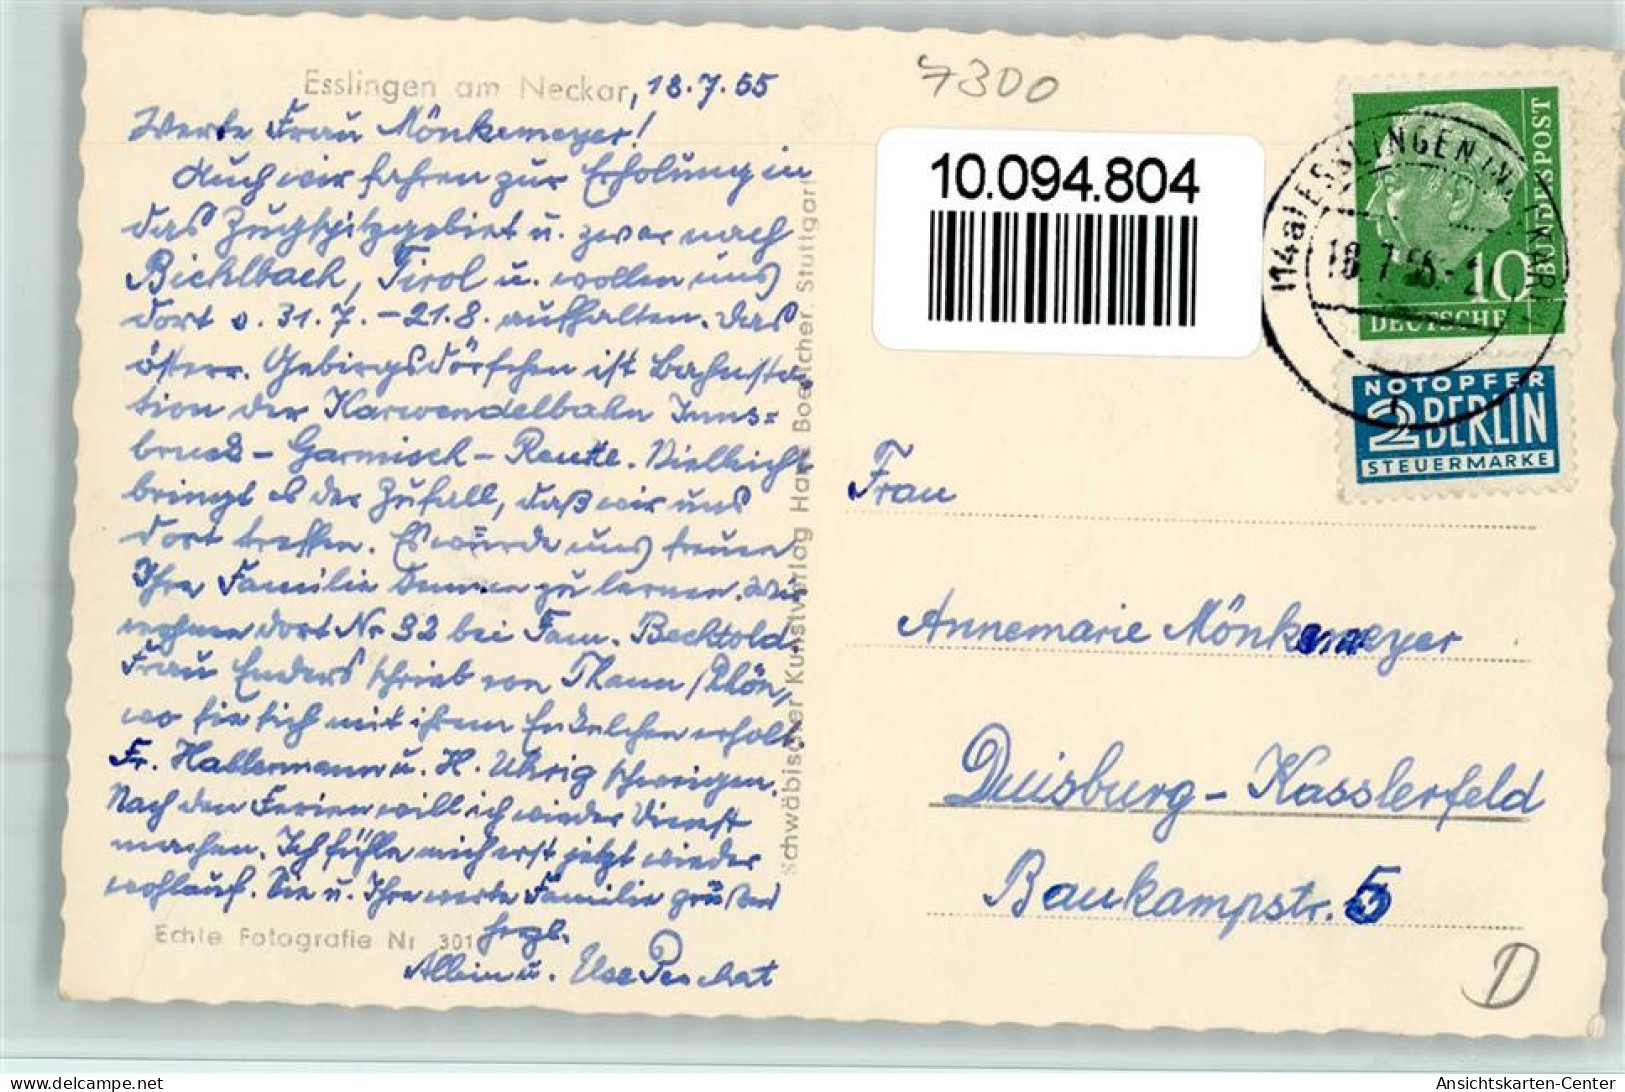 Esslingen am Neckar, 18.7.55
Werte Frau Mönkemeyer!
Auch wir fahren zur Erholung in
das Zugspitzgebiet u. zwar nach
Bichlbach, Tirol u. wollen uns
dort v. 31.7.-21.8. aufhalten. Das
österr. Gebirgsdörfchen ist Bahnsta-
tion der Karwendelbahn Inns-
bruck - Garmisch - Reutte. Vielleicht
bringt es der Zufall, daß wir uns
dort treffen. Es würde uns freuen
Ihre Familie kennen zu lernen. Wir
wohnen dort Nr 32 bei Fam. Bechtold.
Frau Enders schrieb von Thann / Plön,
wo sie sich mit ihrem Enkelchen erholt.
Fr. Hallermann u. H. Uhrig schweigen.
Nach den Ferien will ich wieder Dienst
machen. Ich fühle mich erst jetzt wieder
wohlauf. Sie u. Ihre werte Familie grüßen
herzl.
Echte Fotografie Nr 301
Albin u. Else Peschat
Schwäbischer Kunstverlag Hans Boettcher, Stuttgart
7300
10.094.804
(14a) ESSLINGEN (NECKAR)
18.7.55.-2
10
DEUTSCHE
BUNDESPOST
NOTOPFER
2 BERLIN
STEUERMARKE
Frau
Annemarie Mönkemeyer
Duisburg-Kasslerfeld
Baukampstr. 5
D
delcampe.net
Ansichtskarten-Center